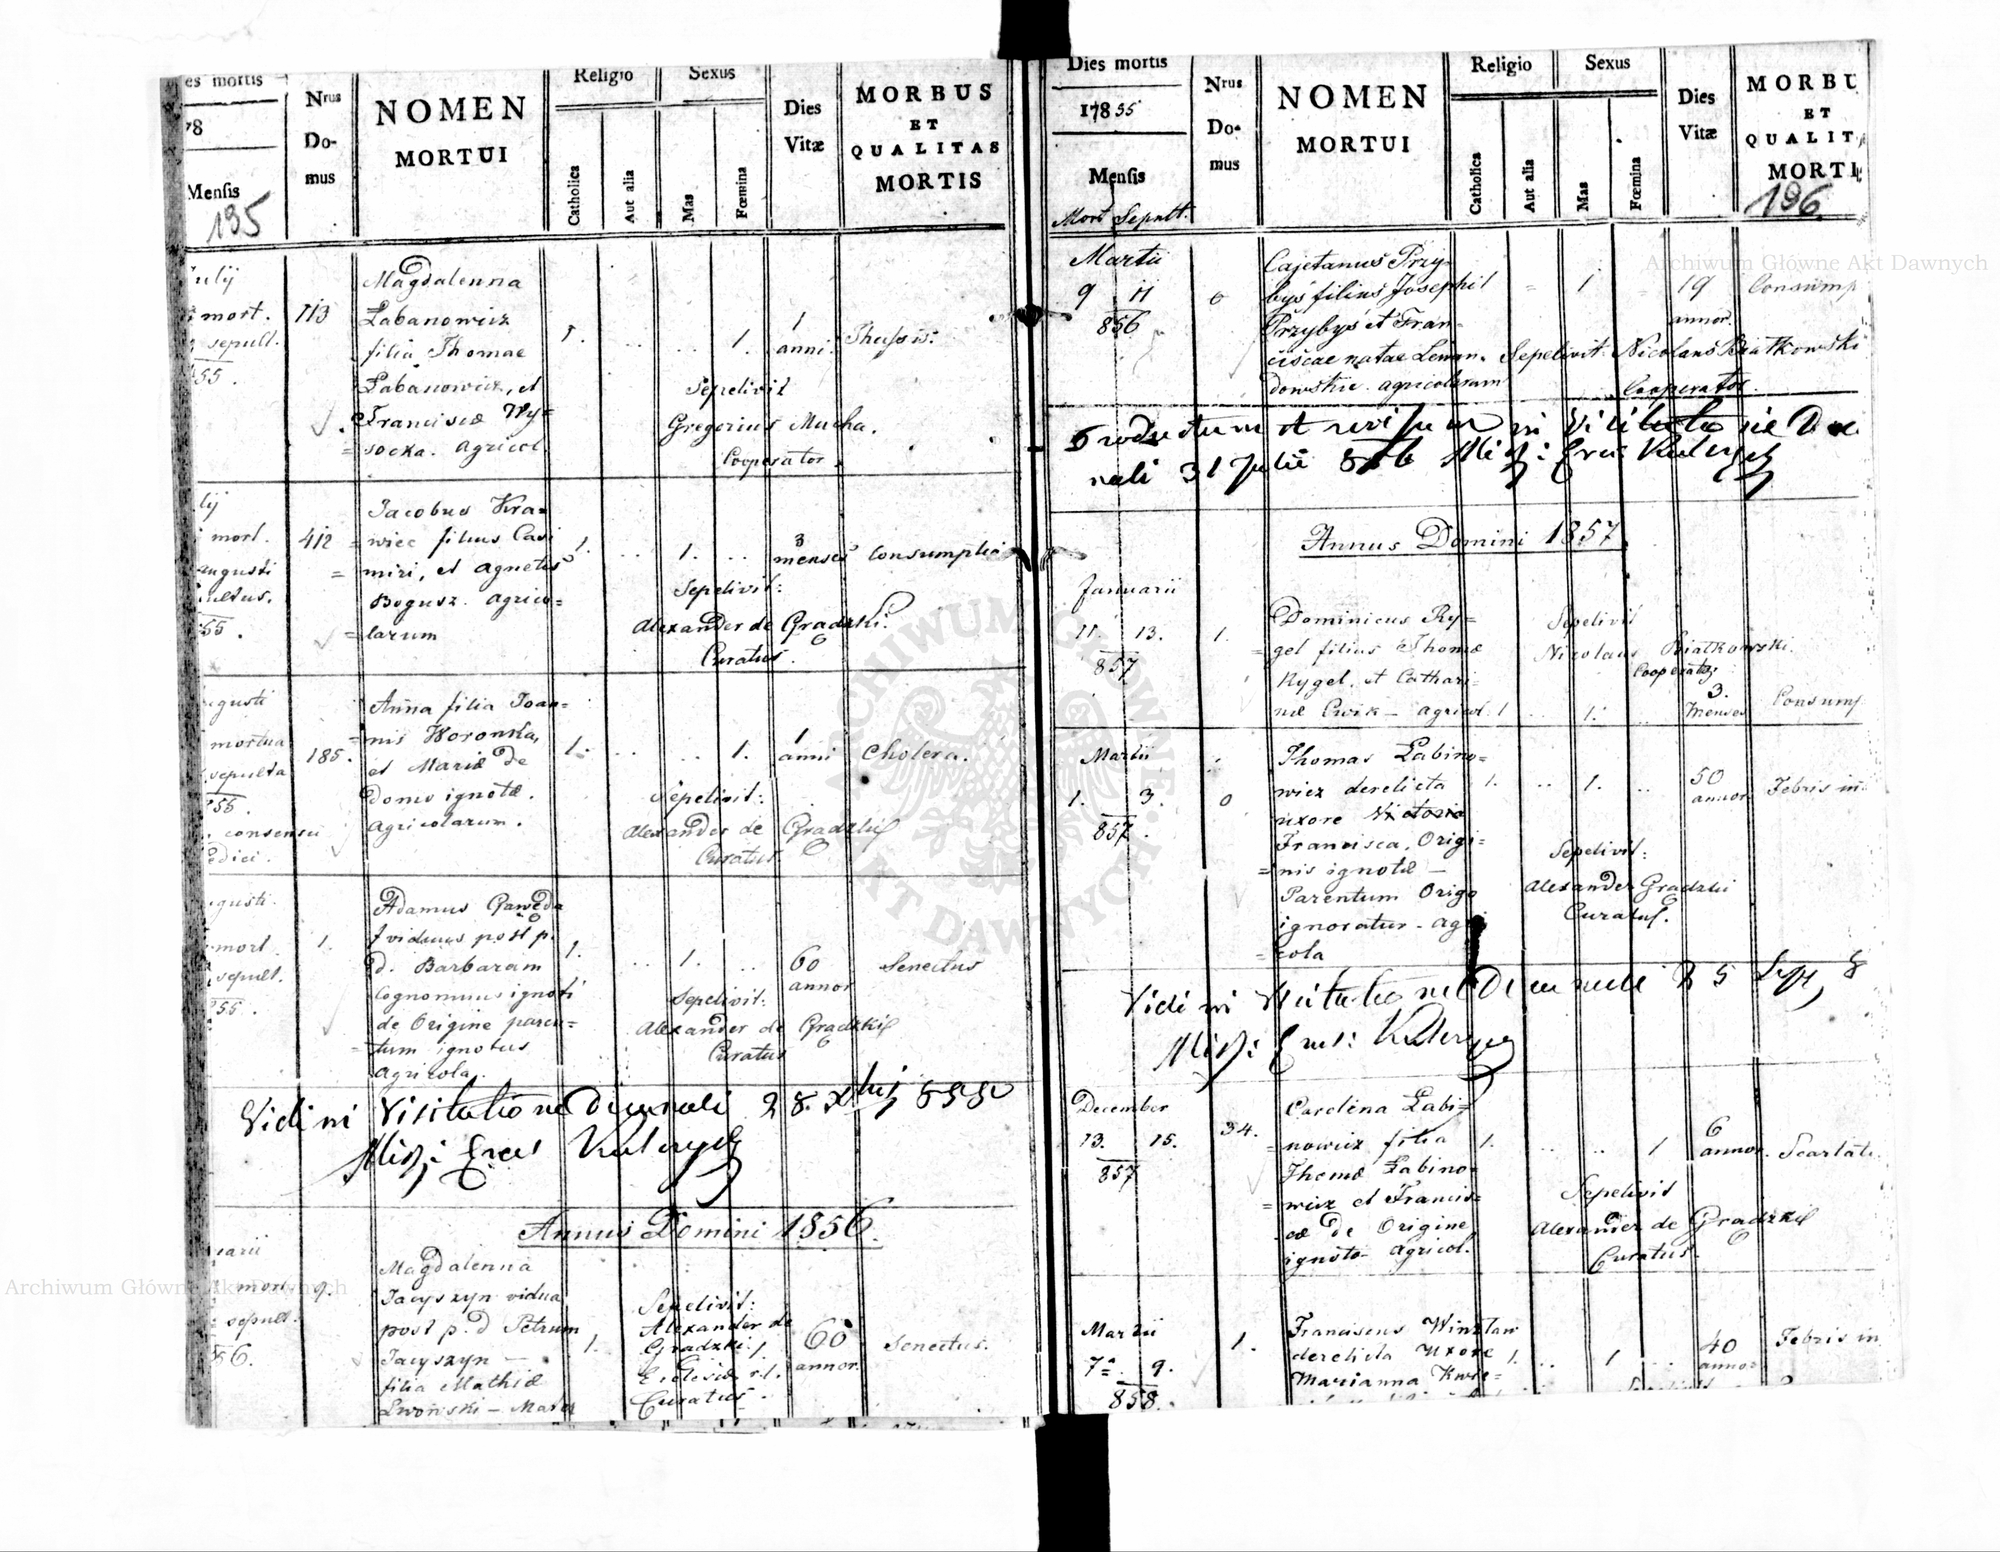 es mortis
78
Mensis
195
Nrus
Do-
mus
NOMEN
MORTUI
Religio
Catholica
Aut alia
Sexus
Mas
Fœmina
Dies
Vitæ
MORBUS
ET
QUALITAS
MORTIS
ulij
mort.
sepult.
55.
113
Magdalenna
Łabanowicz
filia Thomae
Łabanowicz, et
Franciscæ Wy=
=socka. agricol.
1.
..
..
1.
1
anni.
Phthisis.
Sepelivit
Gregorius Mucha.
Cooperator.
lij
mort.
augusti
ultus.
55.
412
Jacobus Kra=
=wiec filius Casi
=miri, et agnetis
Bogusz. agrico=
=larum
1.
..
1.
..
3
menses
Consumptio
Sepelivit:
Alexander de Gradzki.
Curatus.
gusti
mortua
sepulta
55.
consensu
edici.
185.
Anna filia Joan=
=nis Woronka,
et Mariæ de
domo ignotæ.
agricolarum.
1.
..
..
1.
1
anni
Cholera.
Sepelivit:
Alexander de Gradzkij
Curatus.
gusti.
mort.
sepult.
55.
1.
Adamus Gawęda
viduus post p.
d. Barbaram
Cognominis ignoti
de Origine paren=
=tum ignotus
agricola.
1.
..
1.
..
60
annor
Senectus
Sepelivit:
Alexander de Gradzkij
Curatus
Vidi in Visitatione Decanali 28 Xbris 855
Annus Domini 1856.
uarii
mort.
sepult.
56.
9.
Magdalenna
Jacyszyn vidua
post p. d Petrum
Jacyszyn —
filia Mathiæ
Lwoński — Mater
1.
Sepelivit:
Alexander de
Gradzki
Eclesiæ r.l.
Curatus.
60
annor.
Senectus.
Dies mortis
178 55
Mensis
Mort Sepult.
Nrus
Do-
mus
NOMEN
MORTUI
Religio
Catholica
Aut alia
Sexus
Mas
Fœmina
Dies
Vitæ
MORBU
ET
QUALIT
MORTI
196
Martii
9 11
856
0
Cajetanus Przy=
byś filius Josephi
Przybyś et Fran=
ciscae natae Lewan=
dowskie. agricolarum
1
1
19
annor.
Consump
Sepelivit. Nicolaus Białkowski
Cooperator.
Productum et revisum in Visitatione Deca
nali 31 Julii 856
Annus Domini 1857.
Januarii
11. 13.
857
1.
Dominicus Ry=
=gel filius Thomæ
Rygel, et Cathari=
næ Cwik — agricol.
1
..
1.
..
3.
menses
Consump
Sepelivit
Nicolaus Białkowski.
Cooperator
Martii
1. 3.
857.
0
Thomas Łabino=
wicz derelicta
uxore Victoria
Francisca, Origi=
=nis ignotæ —
Parentum Origo
ignoratur - agri
=cola
1.
..
1.
..
50
annor.
Febris in
Sepelivit:
Alexander Gradzki
Curatus.
Vidi in Visitatione Decanali 25 Sept, 8
December
13. 15.
857
34.
Carolina Łabi=
=nowicz filia
Thomæ Łabino=
=wicz et Francis=
cæ de Origine
ignota agricol.
1.
..
..
1
6
annor.
Scarlati
Sepelivit
Alexander de Gradzkij
Curatus.
Martii
7. 9.
858.
1.
Franciscus Winziar
derelicta Uxore
Marianna Kwie=
1.
..
1
..
40
annor
Febris in
Archiwum Główne Akt Dawnych
Archiwum Główne Akt Dawnych
ARCHIWUM GŁÓWNE AKT DAWNYCH